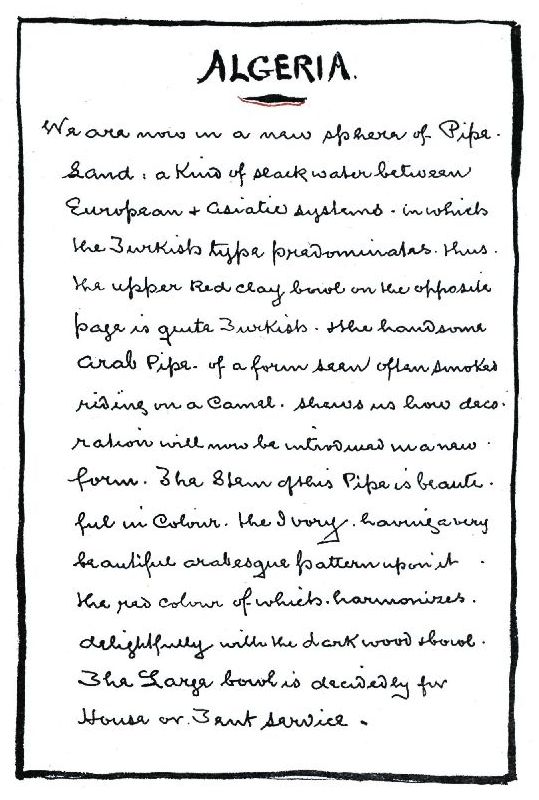 ALGERIA.
We are now in a new sphere of Pipe.
Land: a Kind of slack water between
European & Asiatic systems. in which
the Turkish type predominates. thus.
the upper Red clay bowl on the opposite
page is quite Turkish. the handsome
Arab Pipe. of a form seen often smoked
riding on a Camel. shews us how deco.
ration will now be introduced in a new.
form. The Stem of this Pipe is beauti.
ful in Colour. the Ivory. having a very
beautiful arabesque pattern upon it.
the red colour of which. harmonizes.
delightfully with the dark wood & bowl.
The Large bowl is decidedly for
House or Tent service.